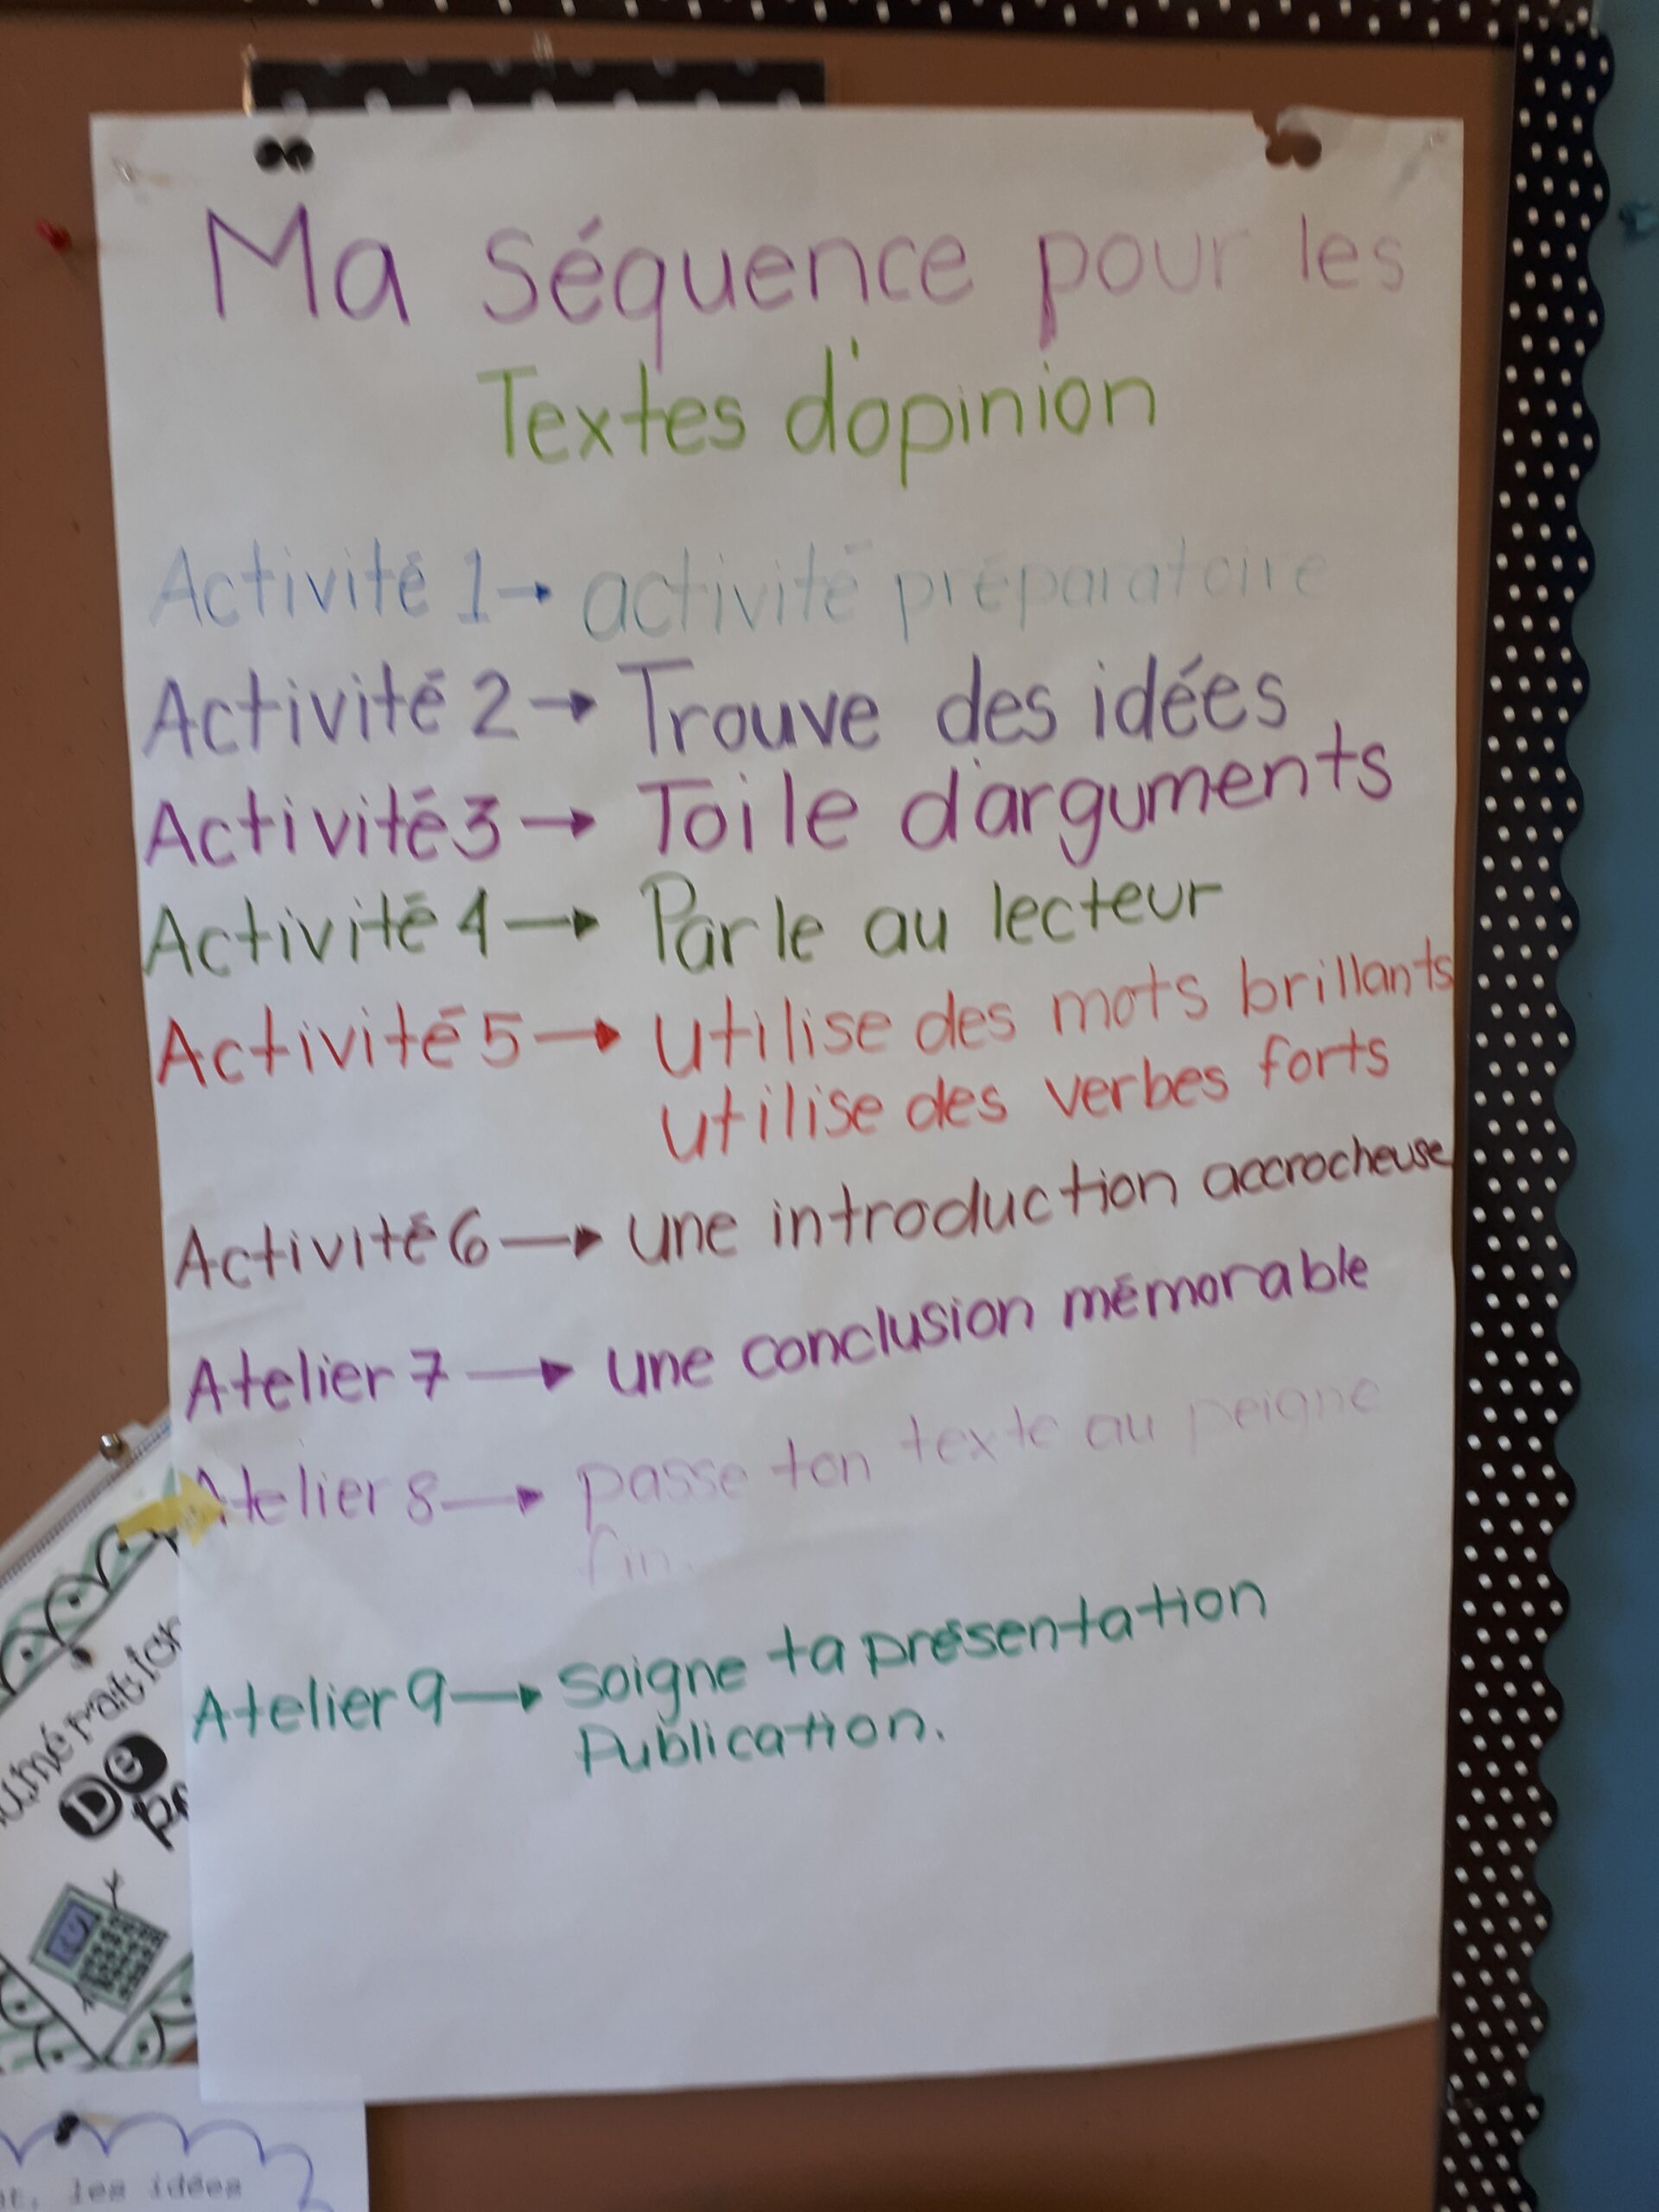 Ma séquence pour les
Textes d'opinion
Activité 1 → activité préparatoire
Activité 2 → Trouve des idées
Activité 3 → Toile d'arguments
Activité 4 → Parle au lecteur
Activité 5 → utilise des mots brillants
utilise des verbes forts
Activité 6 → une introduction accrocheuse
Atelier 7 → une conclusion mémorable
Atelier 8 → passe ton texte au peigne
fin.
Atelier 9 → soigne ta présentation
Publication.
De
les idées